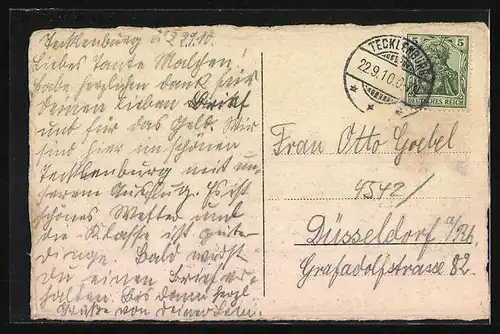 Tecklenburg d. 22.9.10.
Liebes Tante Malchen!
Habe herzlichen dank für
deinen lieben Brief
und für das Geld. Wir
sind hier im schönen
Tecklenburg mit un-
serem Ausflug. Es ist
schönes Wetter und
die Klasse ist guter-
dinge. Bald wirst
du einen Brief er-
halten. Bis dann herzl.
Grüße von deiner
TECKLENBURG
22.9.10.
5 5
DEUTSCHES REICH
Frau Otto Goebel
4542/
Düsseldorf a/Rh.
Grafadolfstrasse 82.